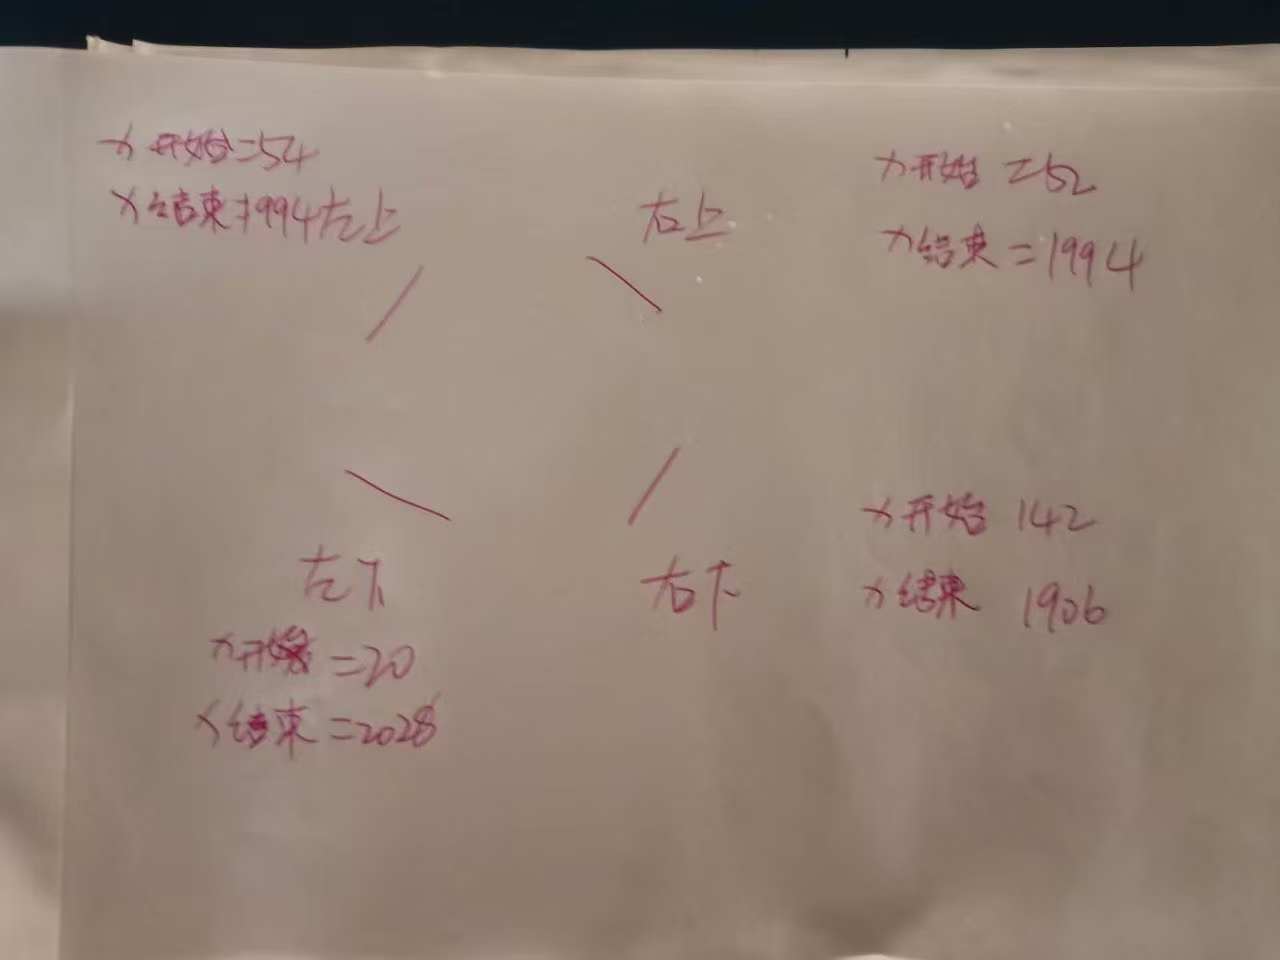 x开始=54
x结束=1994 左上
右上
x开始 =52
x结束=1994
左下
x开始=20
x结束=2028
右下
x开始 142
x结束 1906